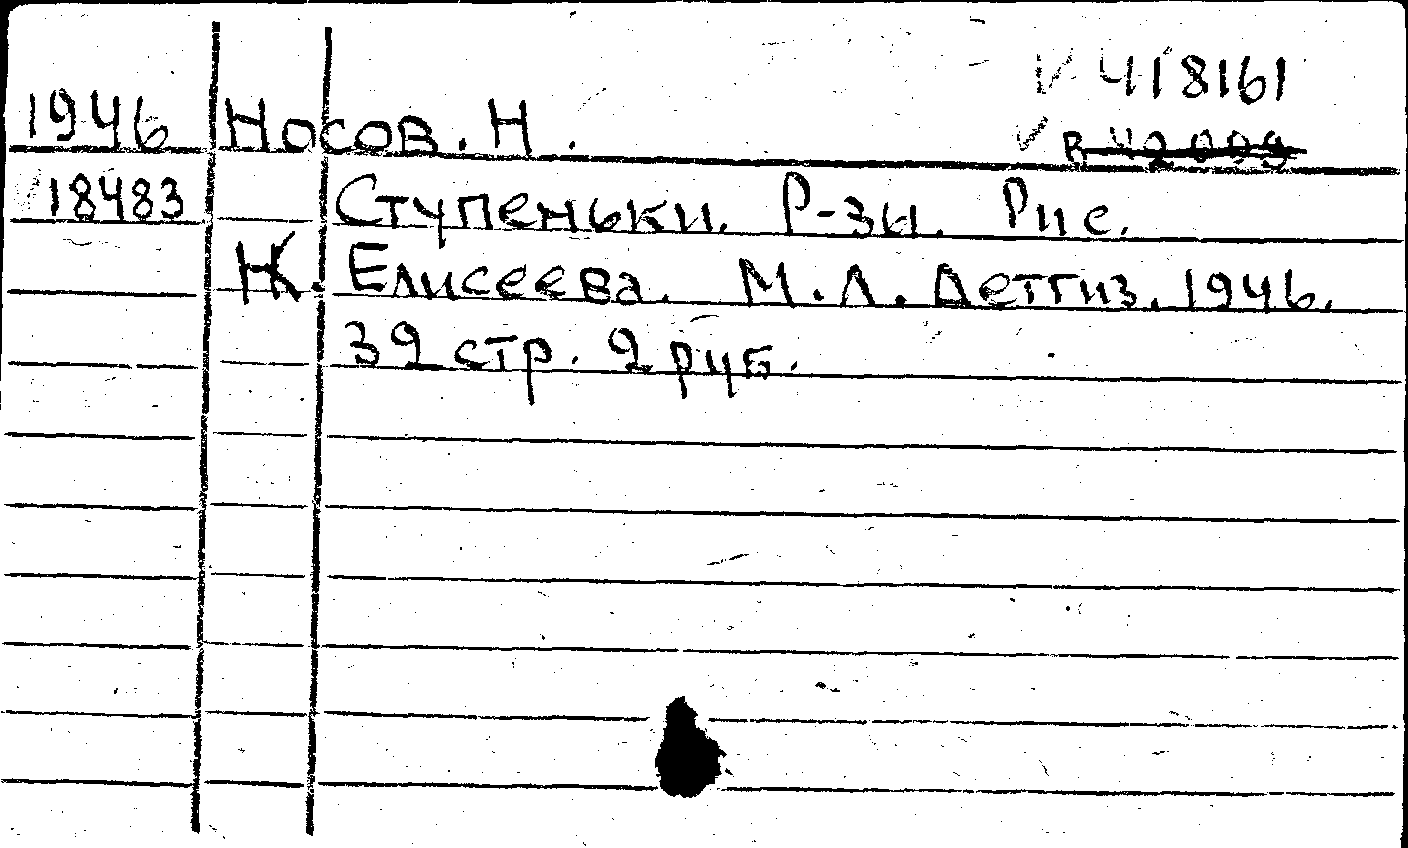 √ 418161
1946 Носов. Н.
√ В 42009
18483 Ступеньки. Р-зы. Рис.
К. Елисеева. М. Л. Детгиз. 1946.
32 стр. 2 руб.